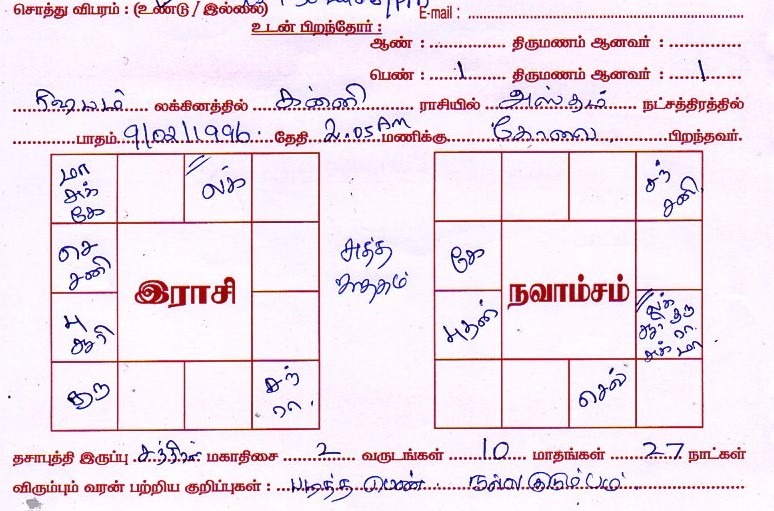 சொத்து விபரம் : (உண்டு / இல்லை) E-mail :
உடன் பிறந்தோர் :
ஆண் : திருமணம் ஆனவர் :
பெண் : 1 திருமணம் ஆனவர் : 1
ரிஷபம் லக்கினத்தில் கன்னி ராசியில் அஸ்தம் நட்சத்திரத்தில்
பாதம் 9/02/1996 தேதி 2.05 AM மணிக்கு கோவை பிறந்தவர்.
மா லக் சந்
சுக் சனி
கே
செ சுத்த கே
சனி இராசி ஜாதகம் நவாம்சம்
பு புதன் லக்
சூரி சூரி குரு
ரா
சுக் மா
குரு சந் செவ்
ரா
தசாபுத்தி இருப்பு சந்திரன் மகாதிசை 2 வருடங்கள் 10 மாதங்கள் 27 நாட்கள்
விரும்பும் வரன் பற்றிய குறிப்புகள் : படித்த பெண் நல்ல குடும்பம்